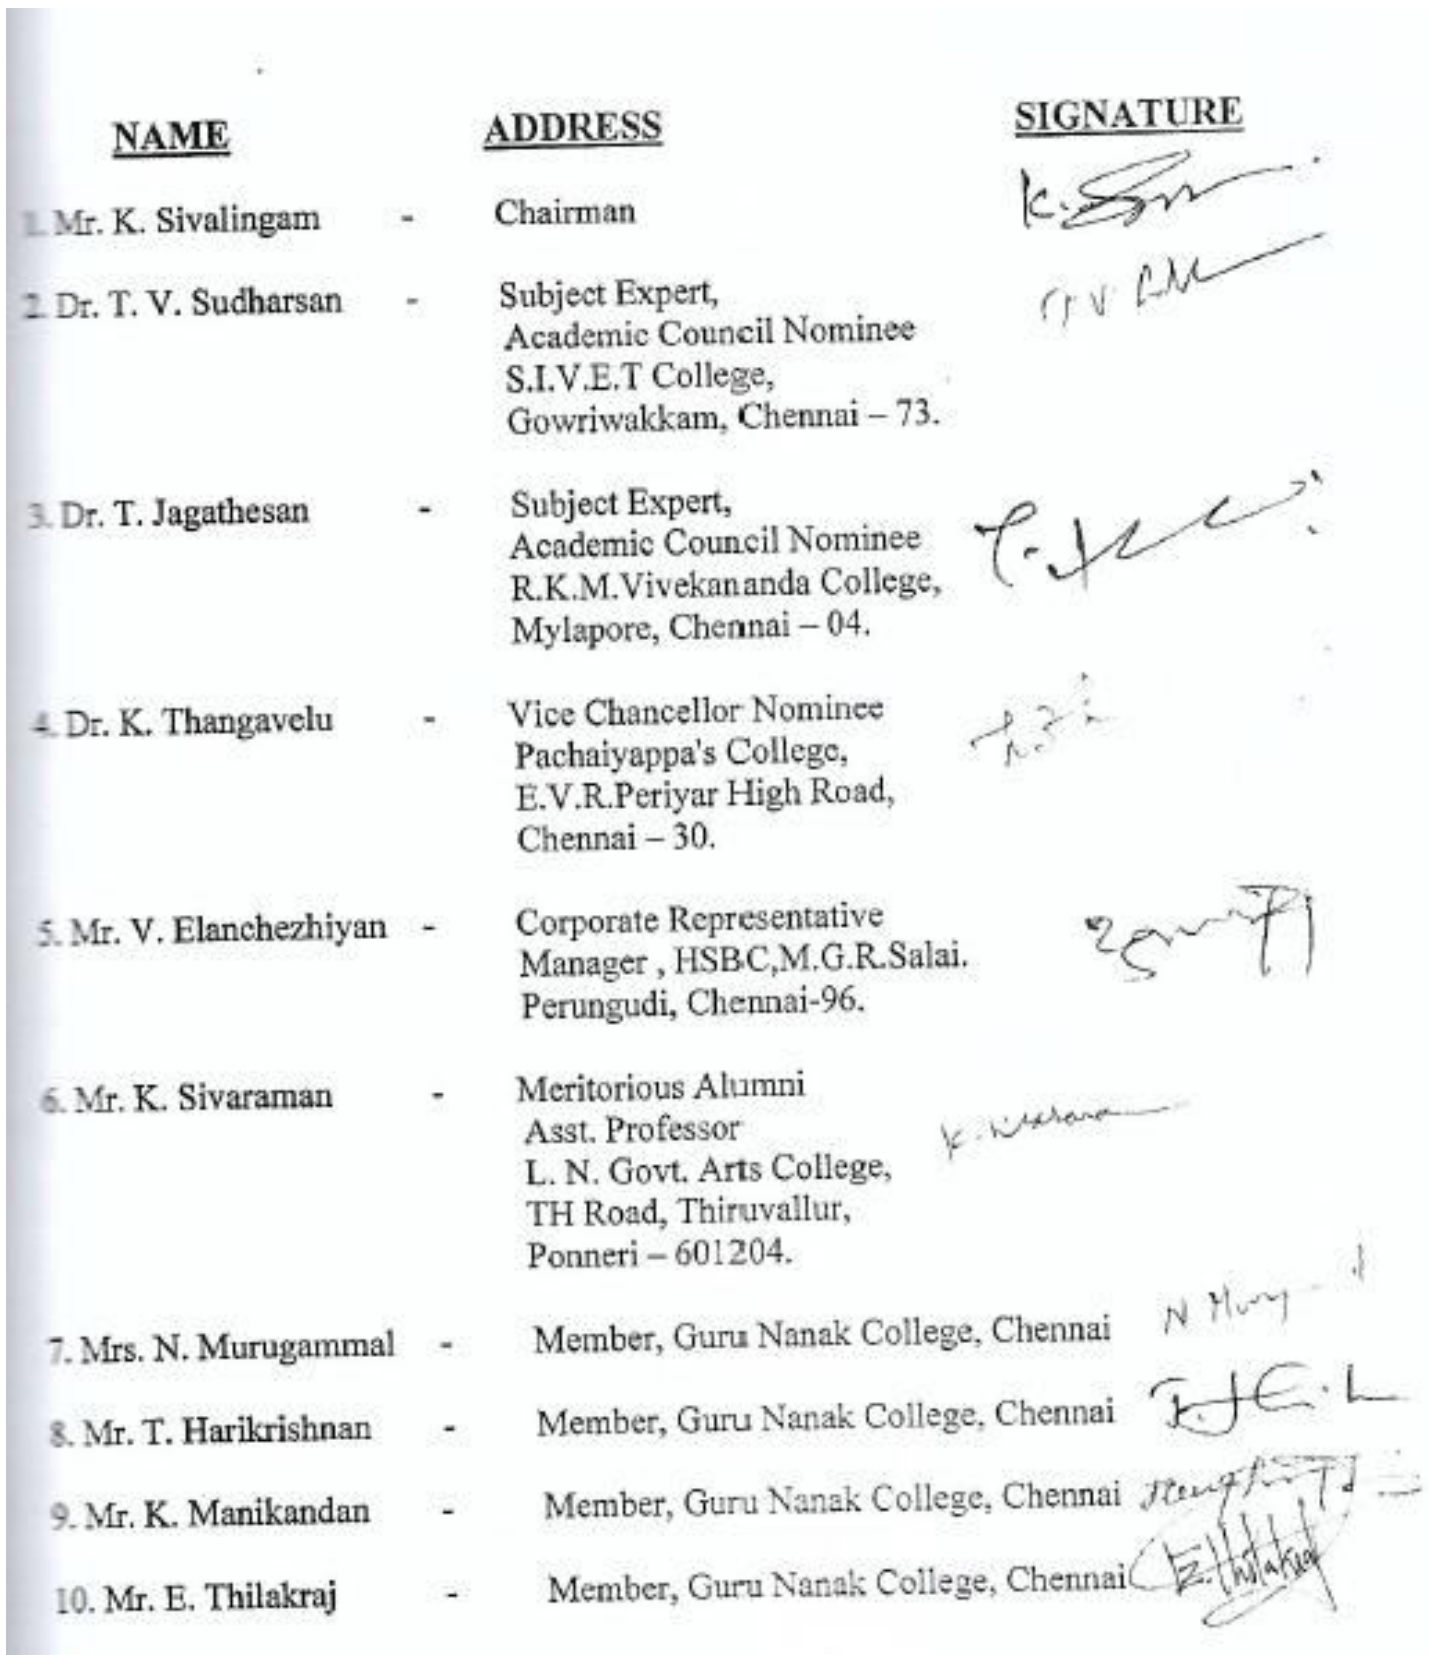 NAME ADDRESS SIGNATURE
1. Mr. K. Sivalingam - Chairman K.
2. Dr. T. V. Sudharsan - Subject Expert, T. V.
Academic Council Nominee
S.I.V.E.T College,
Gowriwakkam, Chennai – 73.
3. Dr. T. Jagathesan - Subject Expert,
Academic Council Nominee
R.K.M.Vivekananda College,
Mylapore, Chennai – 04.
4. Dr. K. Thangavelu - Vice Chancellor Nominee
Pachaiyappa's College,
E.V.R.Periyar High Road,
Chennai – 30.
5. Mr. V. Elanchezhiyan - Corporate Representative
Manager , HSBC,M.G.R.Salai.
Perungudi, Chennai-96.
6. Mr. K. Sivaraman - Meritorious Alumni
Asst. Professor
L. N. Govt. Arts College,
TH Road, Thiruvallur,
Ponneri – 601204.
7. Mrs. N. Murugammal - Member, Guru Nanak College, Chennai N
8. Mr. T. Harikrishnan - Member, Guru Nanak College, Chennai
9. Mr. K. Manikandan - Member, Guru Nanak College, Chennai
10. Mr. E. Thilakraj - Member, Guru Nanak College, Chennai E.Thilakraj